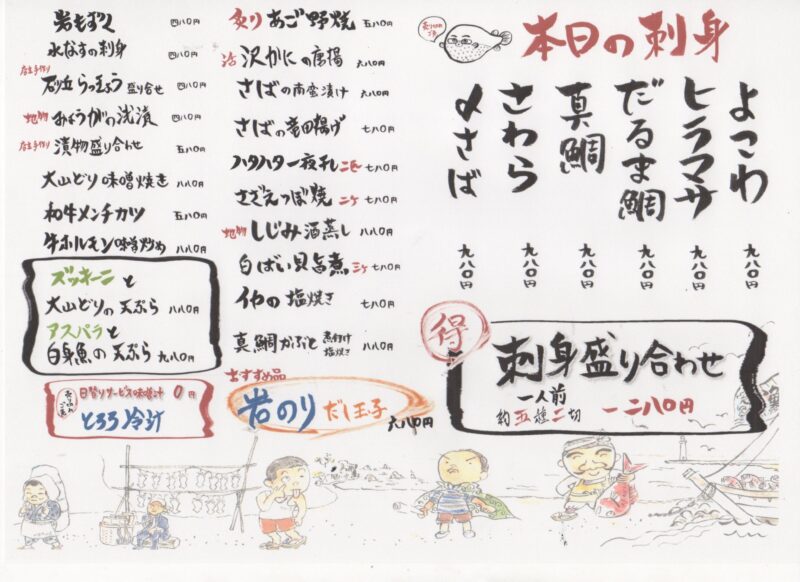 本日の刺身
よこわ 九八〇円
ヒラマサ 九八〇円
だるま鯛 九八〇円
真鯛 九八〇円
さわら 九八〇円
〆さば 九八〇円
得
刺身盛り合わせ
一人前
約五種二切 一二八〇円
炙り あご野焼 五八〇円
沢がにの唐揚 六八〇円
さばの南蛮漬け 六八〇円
さばの竜田揚げ 七八〇円
ハタハタ一夜干し 二匹 七八〇円
さざえつぼ焼 二ケ 七八〇円
地物 しじみ酒蒸し 八八〇円
白ばい貝旨煮 三ケ 七八〇円
イカの塩焼き 七八〇円
真鯛かぶと 煮付け 塩焼き 八八〇円
おすすめ品
岩のり だし玉子 六八〇円
岩もずく 四八〇円
水なすの刺身 四八〇円
自主手作り
砂丘らっきょう 盛り合せ 四八〇円
地物 みょうがの浅漬 四八〇円
自主手作り 漬物盛り合わせ 五八〇円
大山どり味噌焼き 八八〇円
和牛メンチカツ 五八〇円
牛ホルモン味噌炒め 八八〇円
ズッキーニと
大山どりの天ぷら 八八〇円
アスパラと
白身魚の天ぷら 九八〇円
日替りサービス味噌汁 0円
とろろ冷汁